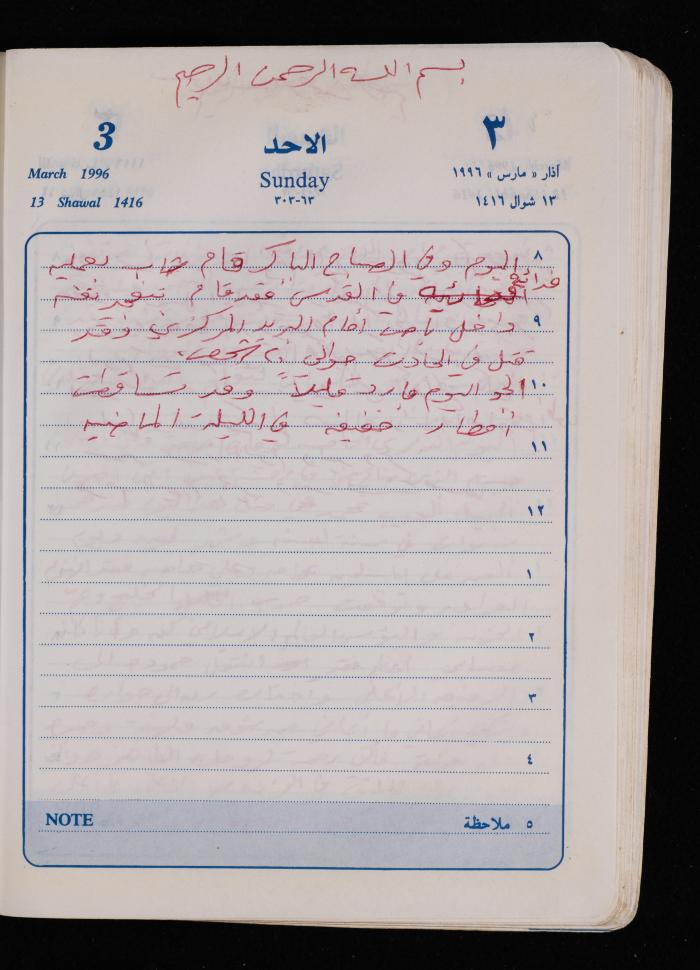 بسم الله الرحمن الرحيم
3 الاحد ٣
March 1996 Sunday آذار « مارس » ١٩٩٦
13 Shawal 1416 ٦٣-٣٠٣ ١٣ شوال ١٤١٦
٨ اليوم وفي الصباح الباكر قام شاب بعمليه
فدائيه في القدس فقد قام بتفجير نفسه
٩ داخل باص أمام البريد المركزي وقد
قتل في الحادث حوالي ٢٠ شخص.
١٠ الجو اليوم بارد قليلاً وقد تساقطت
أمطار خفيفه في الليلة الماضيه
١١
١٢
١
٢
٣
٤
NOTE ٥ ملاحظة